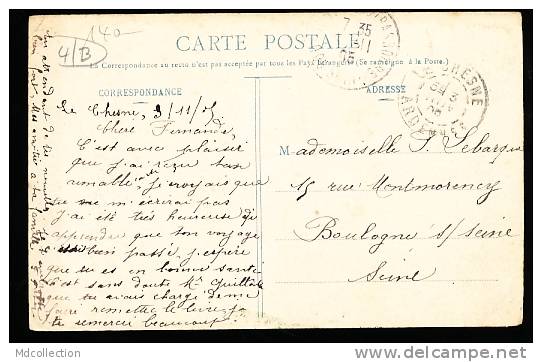 140-
4/B
CARTE POSTALE
La Correspondance au recto n'est pas acceptée par tous les Pays Étrangers (Se renseigner à la Poste.)
CORRESPONDANCE
ADRESSE
Le Chesne, 3/11/05
Chère Fernande,
C'est avec plaisir
que j'ai reçu ton
aimable je croyais que
tu ne m'écrirai pas
j'ai été très heureuse d'
apprendre que ton voyage
bien passé, j'espère
que tu es en bonne santé
C'est sans doute Mr
que tu avais chargé de me
faire remettre le livre, je
te remercie beaucoup.
En attendant de tes nouvelles
Mademoiselle F.
15 rue Montmorency
Boulogne s/ Seine
Seine
CHESNE
ARDENNES
Mdcollection
www.delcampe.net